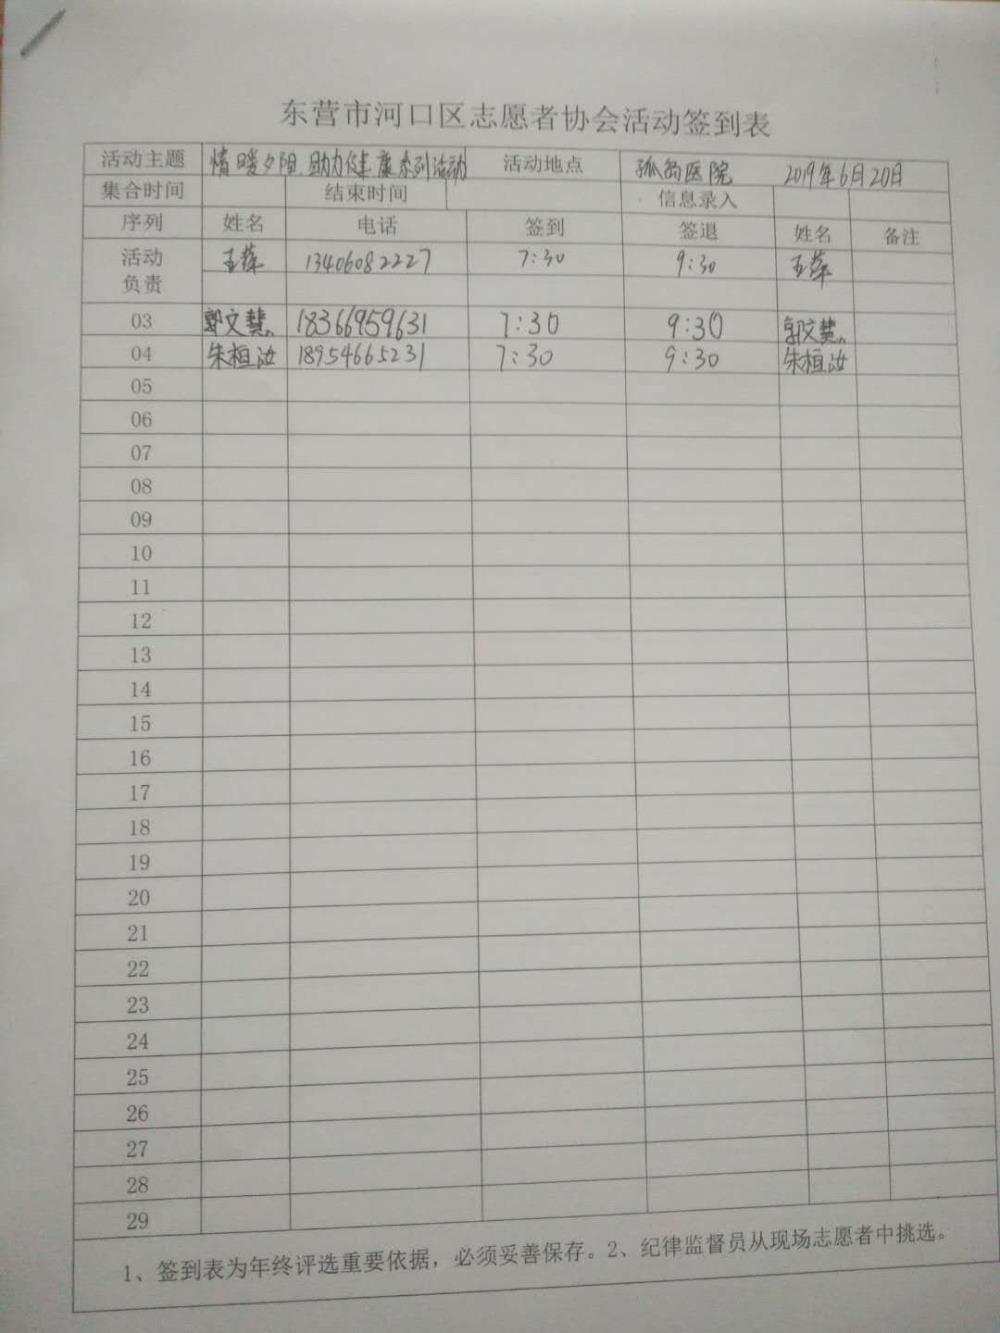 东营市河口区志愿者协会活动签到表
活动主题 情暖夕阳.助力健康系列活动 活动地点 孤岛医院 2019年6月20日
集合时间 结束时间 信息录入
序列 姓名 电话 签到 签退 姓名 备注
活动负责 王萍 13406082227 7:30 9:30 王萍
03 郭文慧 18366959631 7:30 9:30 郭文慧
04 朱桓汝 18954665231 7:30 9:30 朱桓汝
05
06
07
08
09
10
11
12
13
14
15
16
17
18
19
20
21
22
23
24
25
26
27
28
29
1、签到表为年终评选重要依据，必须妥善保存。2、纪律监督员从现场志愿者中挑选。